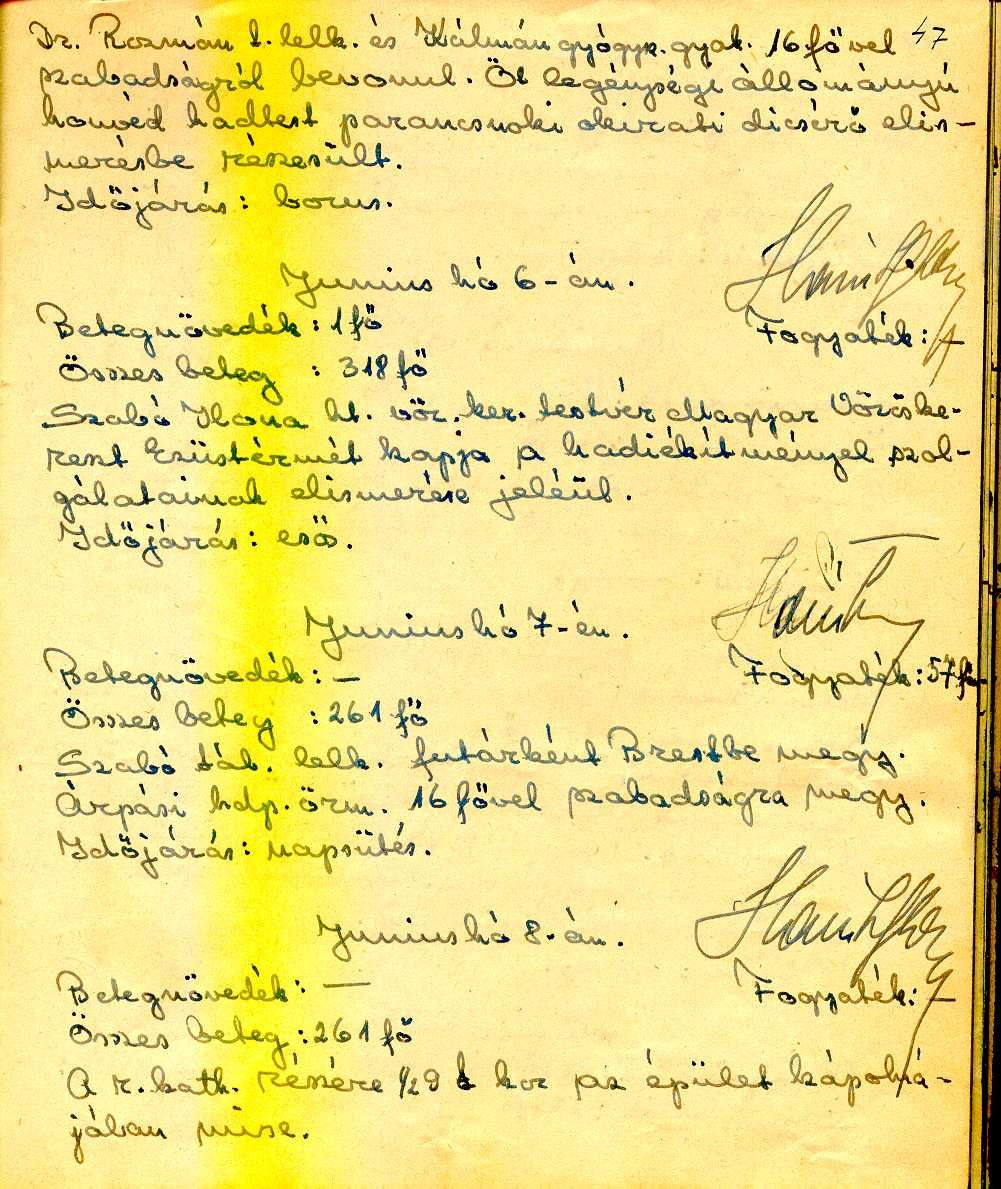 47
Dr. Rozmán t. lelk. és Kálmán gyógyk. gyak. 16 fővel
szabadságról bevonul. Öt legénységi állományú
honvéd hadtest parancsnoki okirati dicsérő elis-
merésbe részesült.
Időjárás: borus.
Junius hó 6-án.
Betegnövedék: 1 fő Fogyaték: —
Összes beteg : 318 fő
Szabó Ilona ht. vör. ker. testvér Magyar Vöröske-
reszt Ezüstérmét kapja a hadiékítményel szol-
gálatainak elismerése jeléül.
Időjárás: esős.
Junius hó 7-én.
Betegnövedék: — Fogyaték: 57 fő
Összes beteg : 261 fő
Szabó táb. lelk. futárként Brestbe megy.
Árpási hdp. őrm. 16 fővel szabadságra megy.
Időjárás: napsütés.
Junius hó 8-án.
Betegnövedék: — Fogyaték: —
Összes beteg : 261 fő
A r. kath. részére 1/29 kor az épület kápolná-
jában mise.